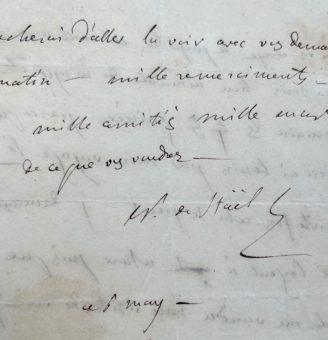 acherai d'aller la voir avec vos dema
matin — mille remerciments —
mille amitiés mille encor
de ce que vos voudrez —
N. de Staël
ce 6 may —